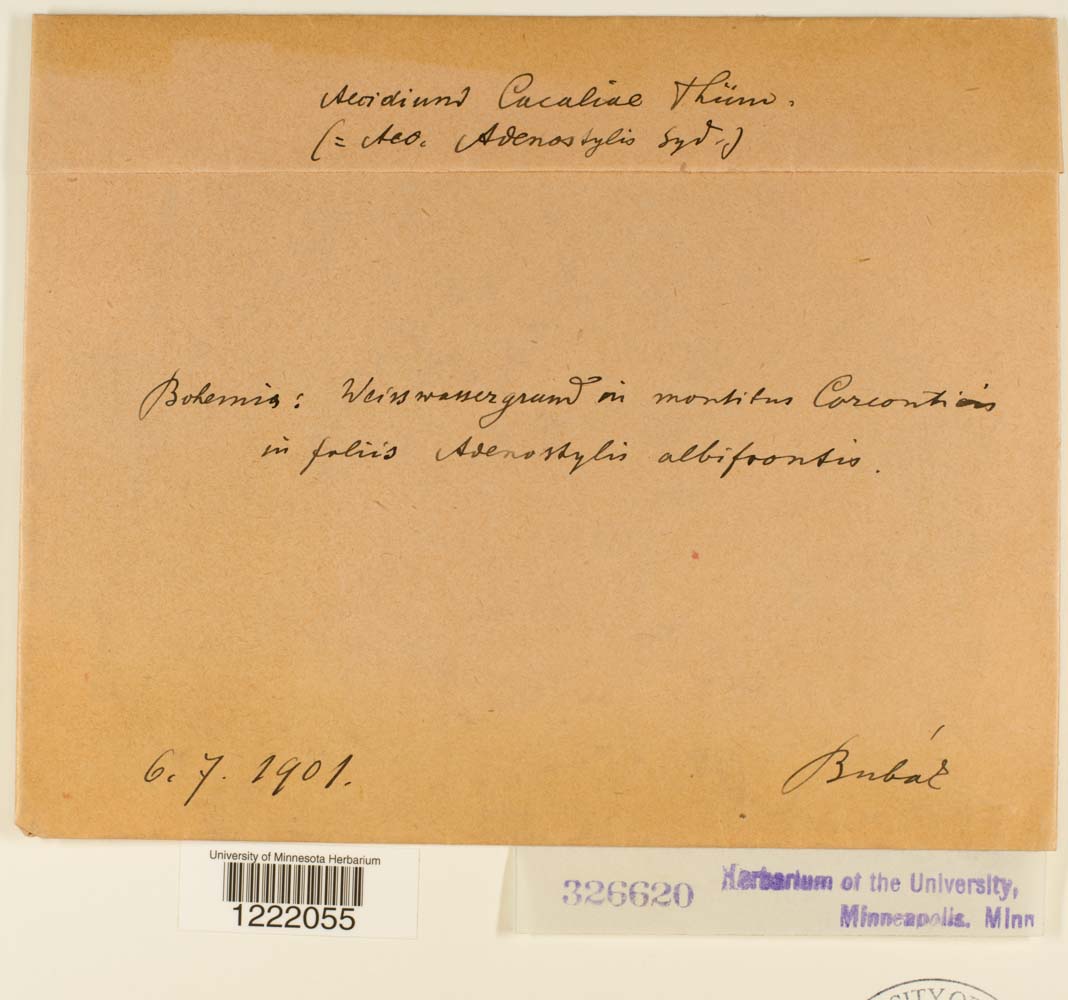 Aecidium Cacaliae Thüm.
(= Aec. Adenostylis Syd.)
Bohemia: Weisswassergrund in montibus Corconticis
in foliis Adenostylis albifrontis.
6. 7. 1901.
Bubák
University of Minnesota Herbarium
1222055
326620
Herbarium of the University,
Minneapolis. Minn
SITY OF